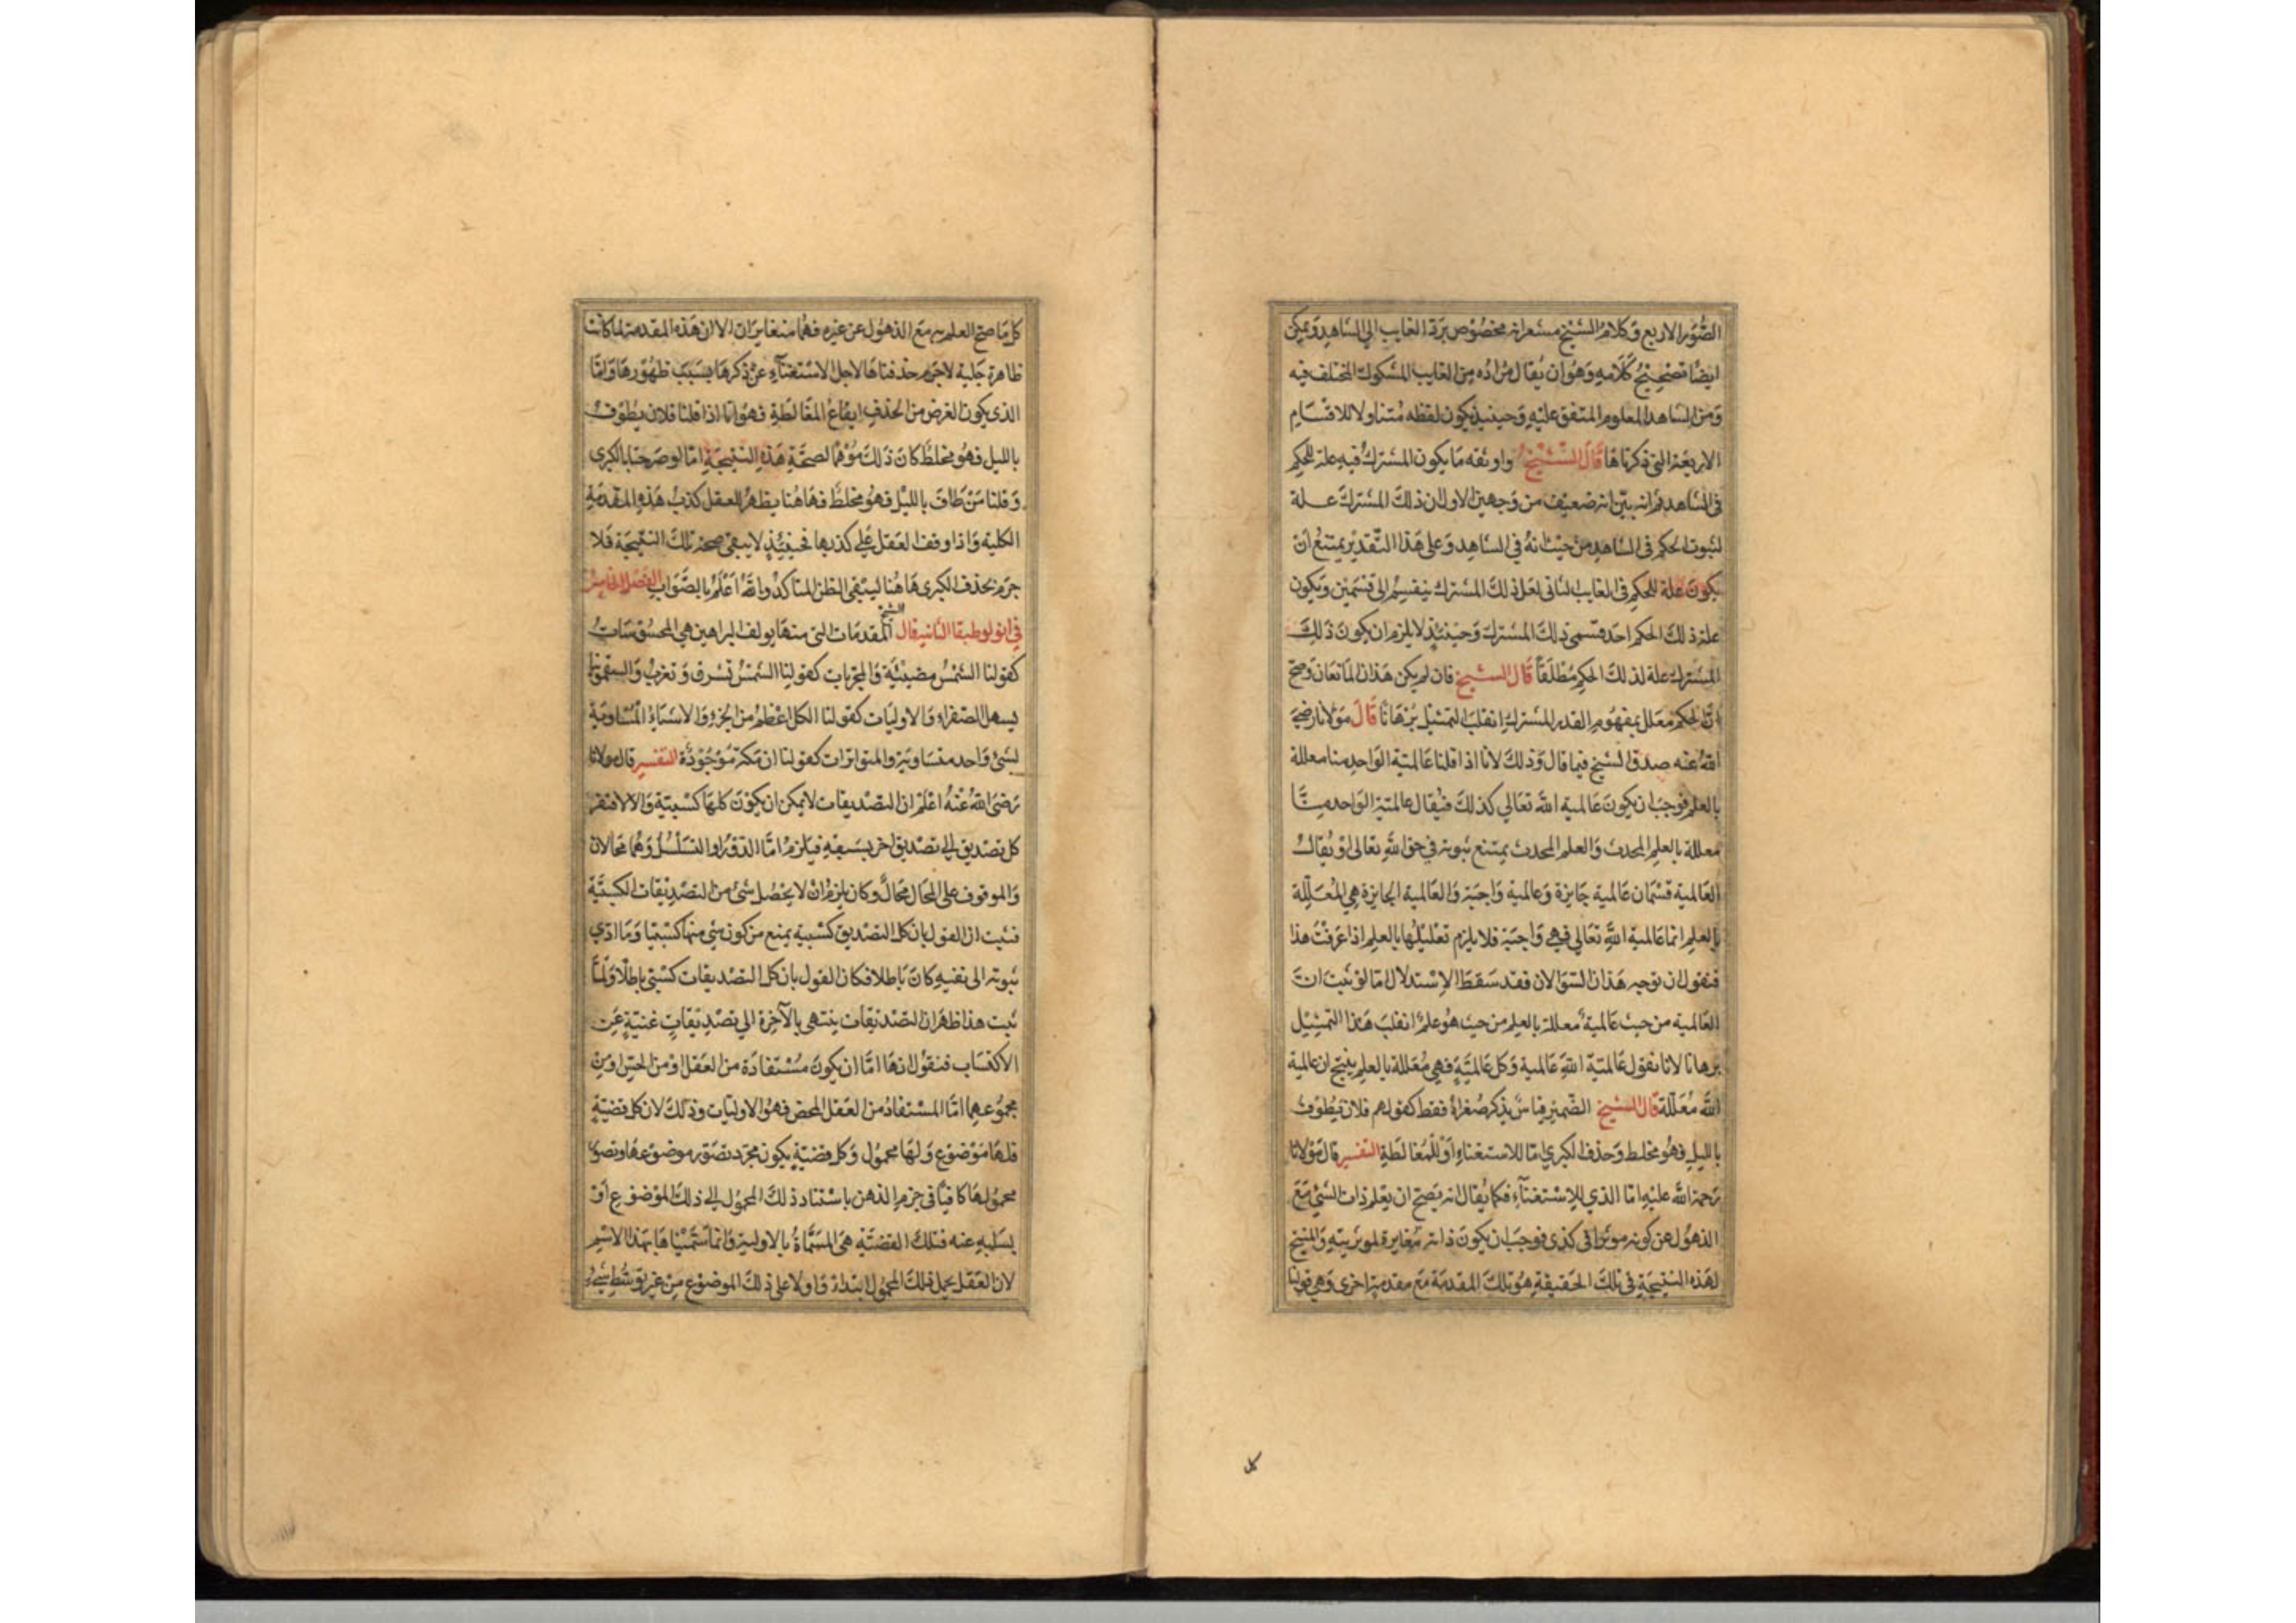 الصور الاربع وكلام الشيخ مشعر انه مخصوص برد الغايب الي الشاهد ويمكن
ايضا تصحيح كلامه وهو ان يقال مراده من الغايب المشكوك المختلف فيه
ومن الشاهد المعلوم المتفق عليه وحينيذ يكون لفظه متناولا للاقسام
الاربعة التي ذكرناها قال الشيخ واوثقه ما يكون المشترك فيه علة للحكم
في الشاهد ثم انه بين انه ضعيف من وجهين الاول ان ذلك المشترك علة
لثبوت الحكم في الشاهد من حيث انه في الشاهد وعلى هذا التقدير يمتنع ان
يكون علة للحكم في الغايب الثاني لعل ذلك المشترك ينقسم الى قسمين ويكون
علة ذلك الحكم احد قسمي ذلك المشترك وحينئذ لا يلزم ان يكون ذلك
المشترك علة لذلك الحكم مطلقا قال الشيخ فان لم يكن هذان المانعان وصح
ان الحكم معلل بمفهوم القدر المشترك انقلب التمثيل برهانا قال مولانا رضي
الله عنه صدق الشيخ فيما قال وذلك لانا اذا قلنا عالمية الواحد منا معللة
بالعلم فوجب ان يكون عالمية الله تعالي كذلك فيقال عالمية الواحد منا
معللة بالعلم المحدث والعلم المحدث يمتنع ثبوته في حق الله تعالى او يقال
العالمية قسمان عالمية جايزة وعالمية واجبة والعالمية الجايزة هي المعللة
بالعلم اما عالمية الله تعالي فهي واجبة فلا يلزم تعليلها بالعلم اذا عرفت هذا
فنقول ان توجه هذان السؤالان فقد سقط الاستدلال اما لو ثبت ان
العالمية من حيث عالمية معللة بالعلم من حيث هو علم انقلب هذا التمثيل
برهانا لانا نقول عالمية الله عالمية وكل عالمية فهي معللة بالعلم ينتج ان عالمية
الله معللة قال الشيخ الضمير قياس يذكر صغراه فقط كقولهم فلان يطوف
بالليل فهو مخلط وحذف الكبري اما للاستغناء او للمغالطة التفسير قال مولانا
رحمة الله عليه اما الذي للاستغناء فكما يقال انه يصح ان يعلم ذات الشئ مع
الذهول عن كونه موثرا في كذي فوجب ان يكون ذاته مغايرة لموثريته والمنتج
لهذه النتيجة في تلك الحقيقة هو تلك المقدمة مع مقدمة اخرى وهي قولنا
كل
كل ما صح العلم به مع الذهول عن غيره فهما متغايران الا ان هذه المقدمة لما كانت
ظاهرة جلية لاجرم حذفناها لاجل الاستغناء عن ذكرها بسبب ظهورها واما
الذي يكون الغرض من الحذف ايقاع المغالطة فهو انا اذا قلنا فلان يطوف
بالليل فهو مخلط كان ذلك موهما لصحة هذه النتيجة اما لو صرحنا بالكبري
وقلنا من طاف بالليل فهو مخلط فهاهنا يظهر للعقل كذب هذه المقدمة
الكلية واذا وقف العقل علي كذبها فحينئذ لا يبقى صحة تلك النتيجة فلا
جرم نحذف الكبري هاهنا ليبقى الظن المتاكد والله اعلم بالصواب الفصل الخامس
في انولوطيقا الثانية قال الشيخ المقدمات التي منها يولف البراهين هي المحسوسات
كقولنا الشمس مضيئة والمجربات كقولنا الشمس تشرق وتغرب والسقمونيا
يسهل الصفراء والاوليات كقولنا الكل اعظم من الجزء والاشياء المساوية
لشئ واحد متساوية والمتواترات كقولنا ان مكة موجودة التفسير قال مولانا
رضي الله عنه اعلم ان التصديقات لا يمكن ان يكون كلها كسبية والا لافتقر
كل تصديق الي تصديق اخر يسبقه فيلزم اما الدور او التسلسل وهما محالان
والموقوف على المحال محال وكان يلزم ان لا يحصل شئ من التصديقات الكسبية
فثبت ان القول بان كل التصديق كسبية يمنع من كون شئ منها كسبيا وما ادي
ثبوته الى نفيه كان باطلا فكان القول بان كل التصديقات كسبي باطلا ولما
ثبت هذا ظهر ان التصديقات ينتهي بالآخرة الي تصديقات غنية عن
الاكتساب فنقول انها اما ان يكون مستفادة من العقل او من الحس او من
مجموعهما اما المستفاد من العقل المحض فهو الاوليات وذلك لان كل قضية
فلها موضوع ولها محمول وكل قضية يكون مجرد تصور موضوعها وتصور
محمولها كافيا في جزم الذهن باسناد ذلك المحمول الي ذلك الموضوع او
بسلبه عنه فتلك القضية هي المسماة بالاولية وانما سميناها بهذا الاسم
لان العقل يحمل ذلك المحمول ابتداء واولا على ذلك الموضوع من غير توسط شيء